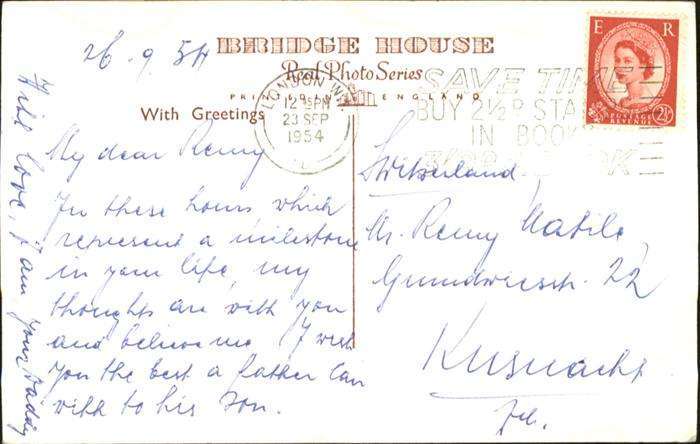 26.9.54
BRIDGE HOUSE
Real Photo Series
PRINTED IN ENGLAND
With Greetings
LONDON W.1
12 PM
23 SEP
1954
SAVE TIME
BUY 2½D STA
IN BOOK
E R
POSTAGE
REVENUE
2½D
My dear Remy
In these hours which
represent a milestone
in your life, my
thoughts are with you
and believe me I wish
you the best a father can
wish to his son.
With love, I am your daddy
Switzerland,
Mr. Remy
22
Kusnacht